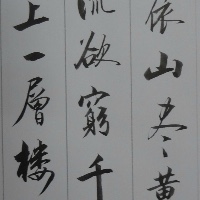 依山尽黄
流欲窮千
上一層楼